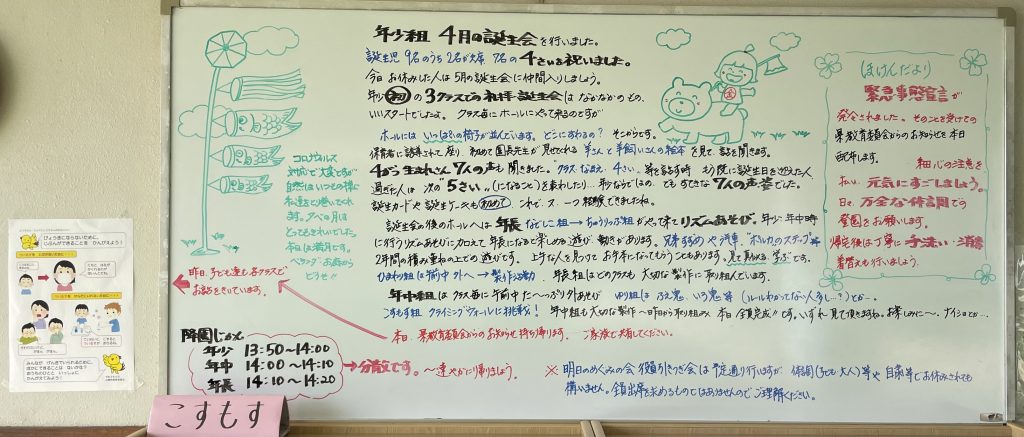 年少組 4月の誕生会を行いました。
誕生児 9名のうち 2名が欠席 7名の4さいを祝いました。
今日 お休みした人は5月の誕生会に仲間入りしましょう。
年少 初 の3クラスでの礼拝・誕生会は なかなかのもの、
いいスタートでしたよ。 クラス毎にホールにやって来るのですが
ホールには いっぱいの椅子が並んでいます。 どこにすわるの? そこからです。
保育者に誘導されて座り、初めて園長先生が見せてくれる 羊さんと羊飼いさんの絵本を見て、話を聞きます。
4がつ 生まれさん 7人の声も聞きました。 "クラス、なまえ、4さい"
過ぎた人は 次の"5さい"(になること)を
7人の声姿でした。
誕生カードや誕生ケーキも 初めて これで、スーっと経験できましたね。
誕生会の後のホールへは 年長 なでしこ組→ちゅうりっぷ組がやって来てリズムあそび。年少・年中時
に行うリズムあそびに加えて 年長になると楽しめる遊び、動きがあります。
2年間の積み重ねの上での遊びです。 上手な人を見つけて お手本になってもらうこともあります。見て真似る 学ぶです。
ひまわり組は午前中 外へ → 製作活動 年長組はどのクラスも 大切な製作に取り組んでいます。
年中組は クラス毎に午前中 たーっぷり外あそび ゆり組は ふえ鬼、いろ鬼等
こすもす組 クライミングウォールに挑戦! 年中組も大切な製作〜昨日から取り組み 本日"全員完成"です。いずれ見て頂きますね。お楽しみに〜 ナイショでーす
本日、県教育委員会からのお知らせ 持ち帰ります。 ご家族で共有してください。
コロナウィルス
対応で大変ですが
自然はいつもの様に
本日は満月です。
ベランダ・お庭から
どうぞ!!
昨日、子ども達も 各クラスで
お話をきいています。
降園じかん
年少 13:50〜14:00
年中 14:00〜14:10
年長 14:10〜14:20
分散です。〜速やかに帰りましょう。
※ 明日のめぐみの会 役員引きつぎ会は 予定通り行いますが 体調(子ども・大人)等や 自粛等でお休みされても
構いません。全員出席を求めるものではありませんので ご理解ください。
ほけんだより
緊急事態宣言が
発令されました。そのことを受けての
県教育委員会からのお知らせを本日
配布します。
細心の注意を
払い、元気にすごしましょう。
日々、万全な体調での
登園をお願いします。
帰宅後は丁寧に手洗い・消毒
着替えも行いましょう。
金
こすもす
びょうきにならないために、
じぶんができることを かんがえよう!
みんなが げんきでいられるために、
ほかにできることは ないかな?
おうちのひとと いっしょに
かんがえてみよう!